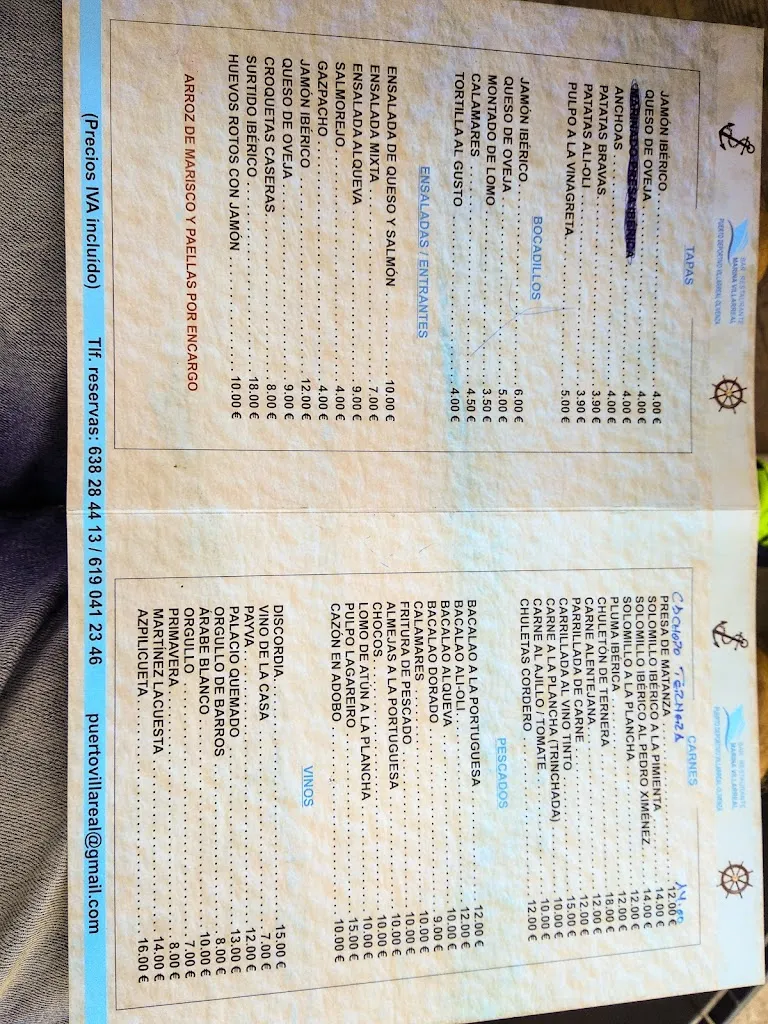 BAR RESTAURANTE
MARINA VILLARREAL
PUERTO DEPORTIVO VILLARREAL OLIVENZA
TAPAS
JAMÓN IBÉRICO 4.00 €
QUESO DE OVEJA 4.00 €
4.00 €
ANCHOAS 4.00 €
PATATAS BRAVAS 3.90 €
PATATAS ALI-OLI 3.90 €
PULPO A LA VINAGRETA 5.00 €
BOCADILLOS
JAMÓN IBÉRICO 6.00 €
QUESO DE OVEJA 5.00 €
MONTADO DE LOMO 3.50 €
CALAMARES 4.50 €
TORTILLA AL GUSTO 4.00 €
ENSALADAS / ENTRANTES
ENSALADA DE QUESO Y SALMÓN 10.00 €
ENSALADA MIXTA 7.00 €
ENSALADA ALQUEVA 9.00 €
SALMOREJO 4.00 €
GAZPACHO 4.00 €
JAMÓN IBÉRICO 12.00 €
QUESO DE OVEJA 9.00 €
CROQUETAS CASERAS 8.00 €
SURTIDO IBÉRICO 18.00 €
HUEVOS ROTOS CON JAMÓN 10.00 €
ARROZ DE MARISCO Y PAELLAS POR ENCARGO
BAR RESTAURANTE
MARINA VILLARREAL
PUERTO DEPORTIVO VILLARREAL OLIVENZA
CARNES
CACHOPO TERNERA 14,00
PRESA DE MATANZA 12.00 €
SOLOMILLO IBÉRICO A LA PIMIENTA 14.00 €
SOLOMILLO IBÉRICO AL PEDRO XIMÉNEZ 14.00 €
SOLOMILLO A LA PLANCHA 12.00 €
PLUMA IBÉRICA 12.00 €
CHULETÓN DE TERNERA 18.00 €
CARNE ALENTEJANA 12.00 €
PARRILLADA DE CARNE 12.00 €
CARRILLADA AL VINO TINTO 15.00 €
CARNE A LA PLANCHA (TRINCHADA) 10.00 €
CARNE AL AJILLO / TOMATE 10.00 €
CHULETAS CORDERO 12.00 €
PESCADOS
BACALAO A LA PORTUGUESA 12.00 €
BACALAO ALI-OLI 12.00 €
BACALAO ALQUEVA 10.00 €
BACALAO DORADO 9.00 €
CALAMARES 10.00 €
FRITURA DE PESCADO 10.00 €
ALMEJAS A LA PORTUGUESA 10.00 €
CHOCOS 10.00 €
LOMO DE ATÚN A LA PLANCHA 10.00 €
PULPO LAGAREIRO 15.00 €
CAZÓN EN ADOBO 10.00 €
VINOS
DISCORDIA 15.00 €
VINO DE LA CASA 7.00 €
PAYVA 12.00 €
PALACIO QUEMADO 13.00 €
ORGULLO DE BARROS 8.00 €
ÁRABE BLANCO 10.00 €
ORGULLO 7.00 €
PRIMAVERA 8.00 €
MARTÍNEZ LACUESTA 14.00 €
AZPILICUETA 16.00 €
(Precios IVA incluído) Tlf. reservas: 638 28 44 13 / 619 041 23 46 puertovillareal@gmail.com